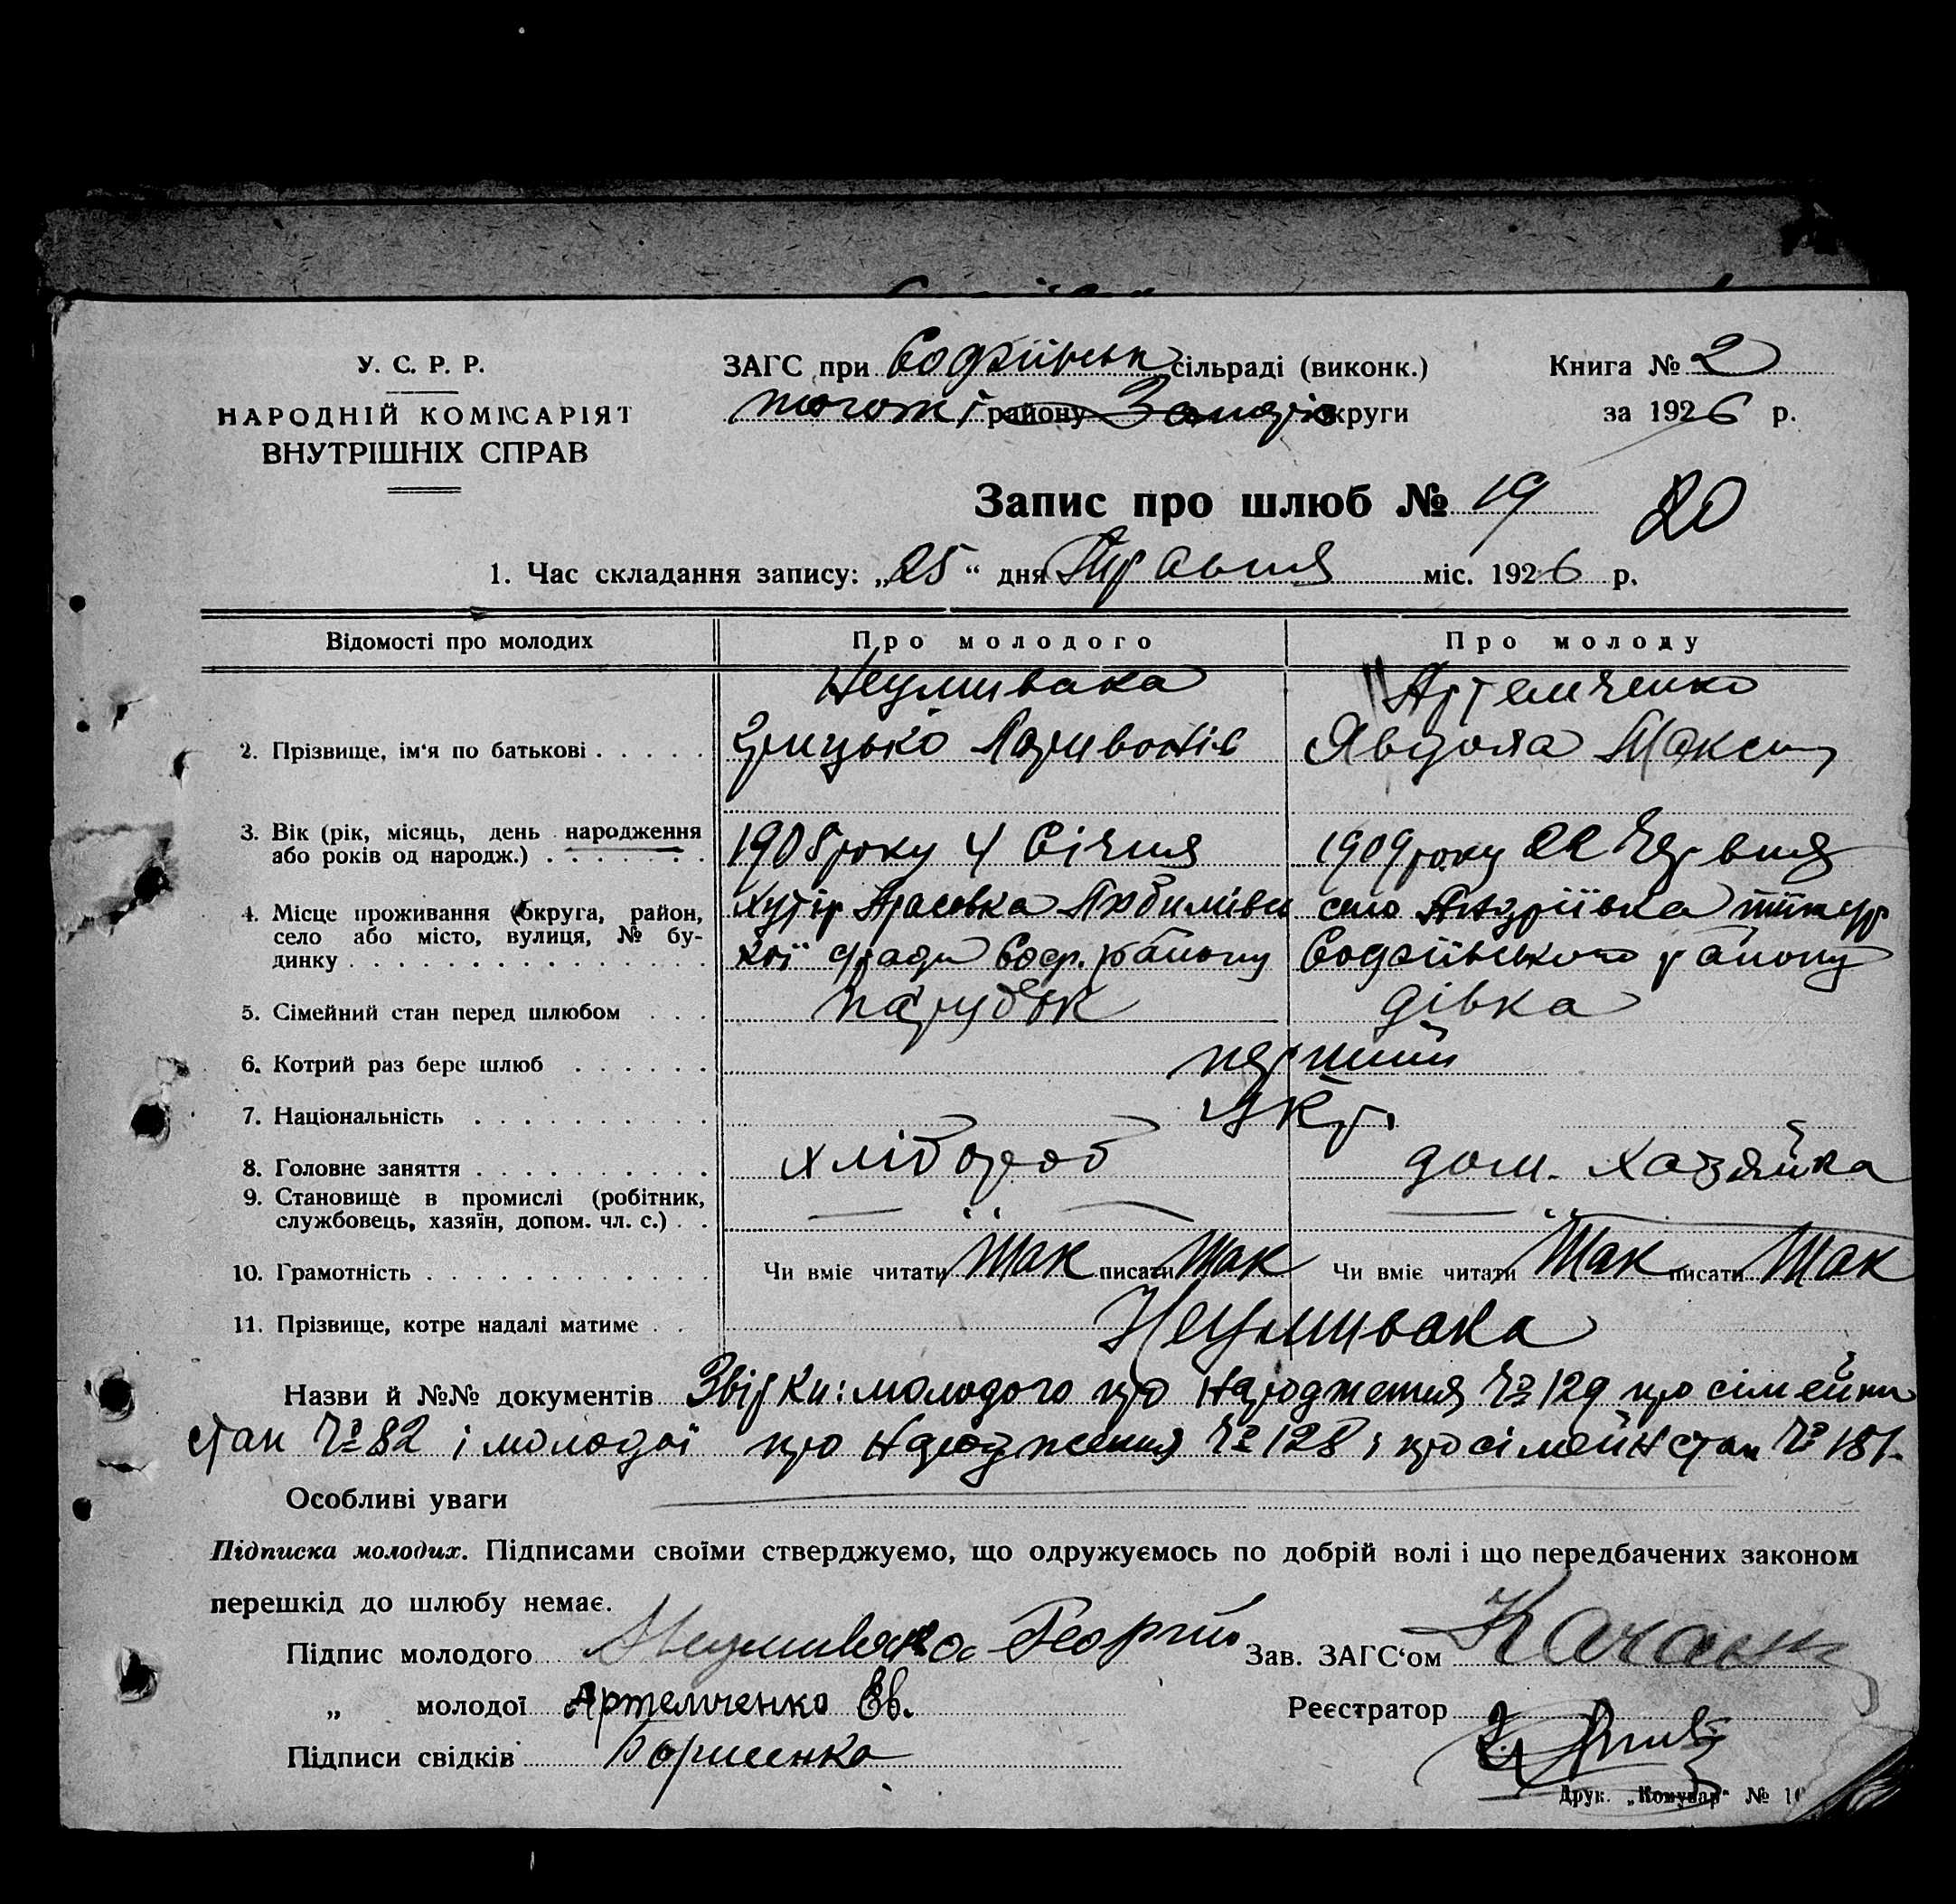 У. С. Р. Р.
НАРОДНІЙ КОМІСАРІЯТ
ВНУТРІШНІХ СПРАВ
ЗАГС при Софіївськ сільраді (виконк.)
тогож району округи
Книга № 2
за 1926 р.
Запис про шлюб № 19 20
1. Час складання запису: „25“ дня Травня міс. 1926 р.
Відомості про молодих Про молодого Про молоду
Неумивака Артемченко
2. Прізвище, ім‘я по батькові Грицько Явдоха Максим
3. Вік (рік, місяць, день народження 1908 року 4 Січня 1909 року 22 Червня
або років од народж.)
4. Місце проживання (округа, район, Хутір Любимівсь село Андріївка
село або місто, вулиця, № бу- кої с/ради Соф. району Софіївського району
динку
5. Сімейний стан перед шлюбом парубок дівка
6. Котрий раз бере шлюб перший
7. Національність Укр.
8. Головне заняття хлібороб дом. хазяйка
9. Становище в промислі (робітник,
службовець, хазяїн, допом. чл. с.)
10. Грамотність Чи вміє читати Так писати Так Чи вміє читати Так писати Так
11. Прізвище, котре надалі матиме Неумивака
Назви й №№ документів молодого про народження Ч 129 про сімейни
стан Ч 82 і молодої про народження Ч 128 і про сімейн стан Ч 181.
Особливі уваги
Підписка молодих. Підписами своїми стверджуємо, що одружуємось по добрій волі і що передбачених законом
перешкід до шлюбу немає.
Підпис молодого Неумивака Георгій Зав. ЗАГС‘ом
„ молодої Артемченко Єв. Реєстратор
Підписи свідків Борисенко
Друк. „Комунар“ №